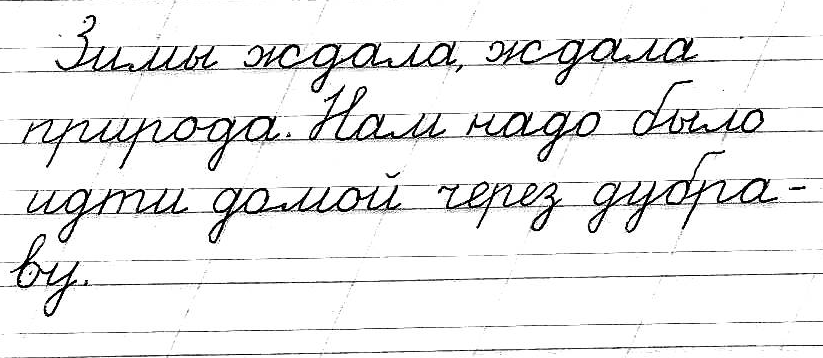 Зимы ждала, ждала
природа. Нам надо было
идти домой через дубра-
ву.